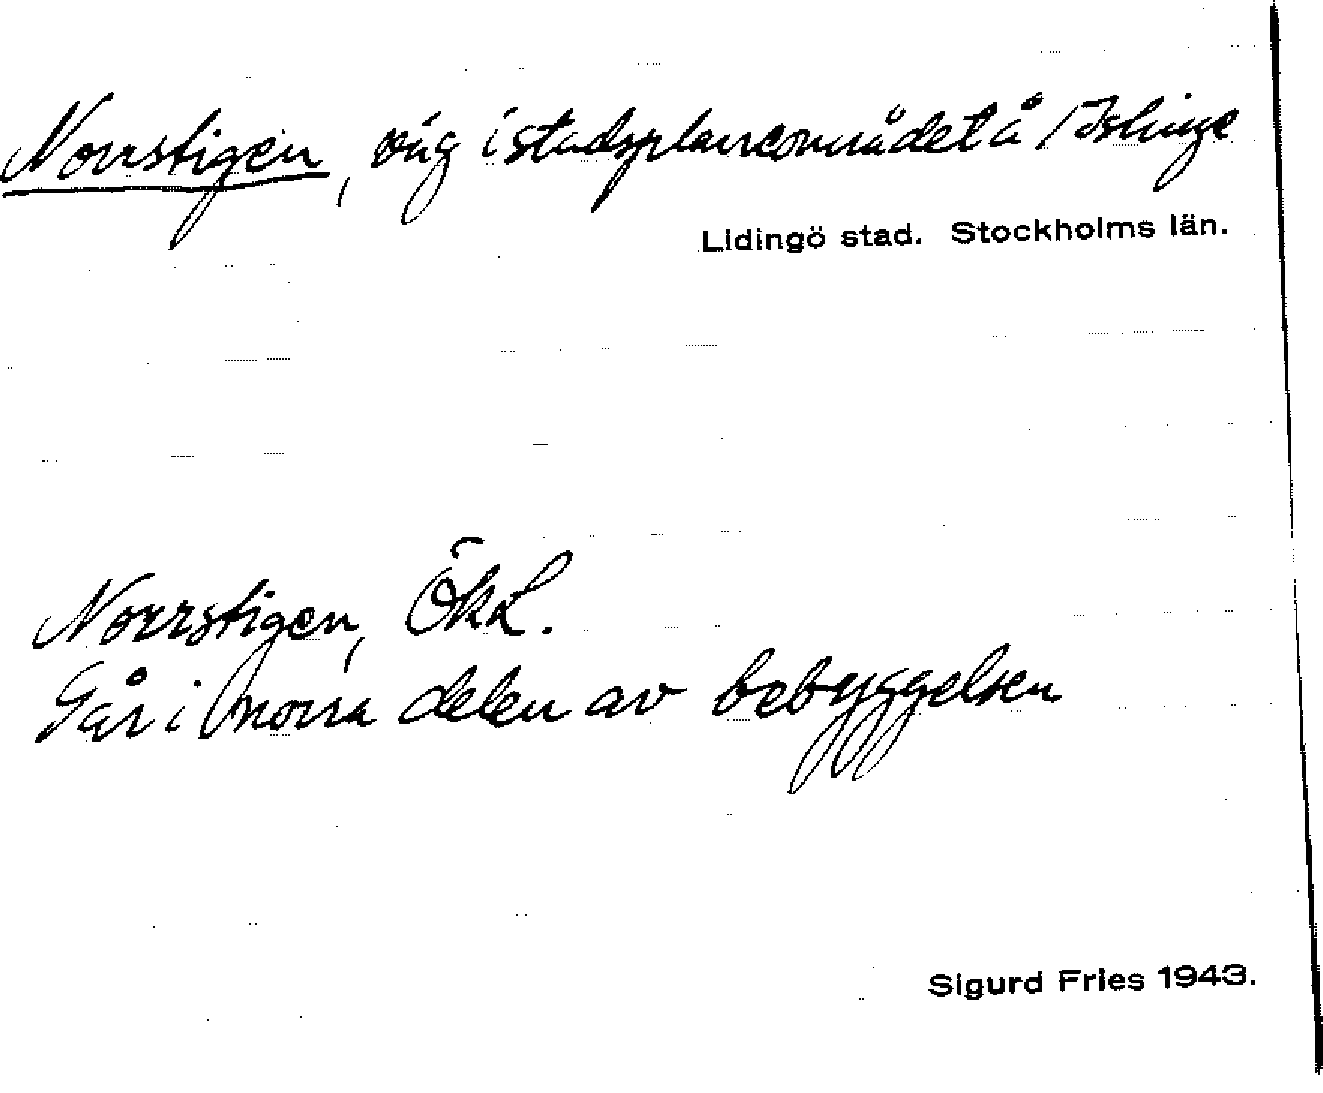 Norrstigen, väg i stadsplaneområdet å /Islinge
Lidingö stad. Stockholms län.
Norrstigen, ÖkL.
Går i norra delen av bebyggelsen
Sigurd Fries 1943.